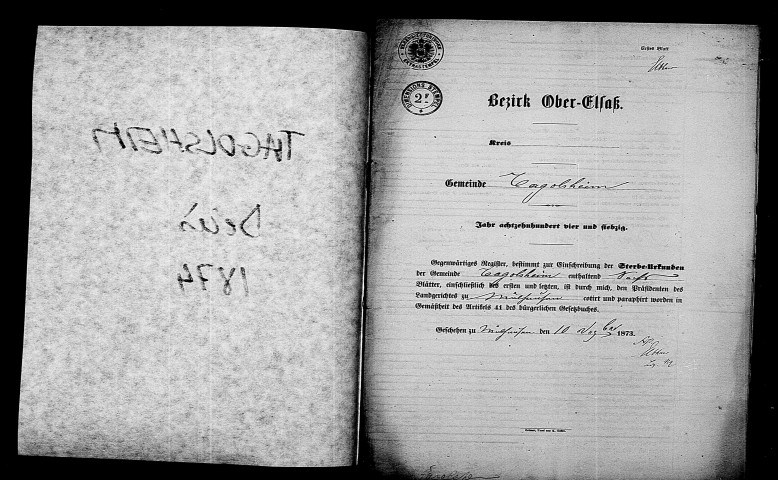 TAGOLSHEIM
Décès
1874
Erstes Blatt
DIMENSIONS STEMPEL
2
Bezirk Ober-Elsaß.
Kreis
Gemeinde Tagolsheim
Jahr achtzehnhundert vier und siebzig.
Gegenwärtiges Register, bestimmt zur Einschreibung der Sterbe-Urkunden
der Gemeinde Tagolsheim enthaltend Sechs
Blätter, einschließlich des ersten und letzten, ist durch mich, den Präsidenten des
Landgerichtes zu Mülhausen cotirt und paraphirt worden in
Gemäßheit des Artikels 41 des bürgerlichen Gesetzbuches.
Geschehen zu Mülhausen den 10 Dezber 1873.